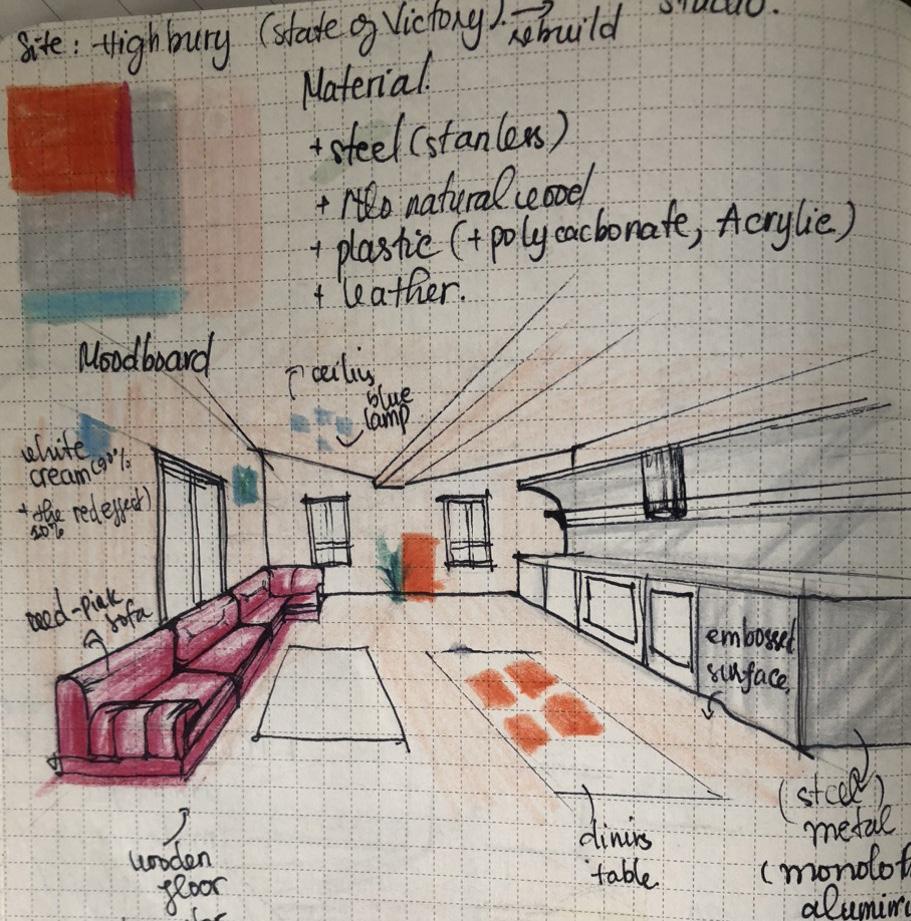 Site: Highbury (state of Victory). → rebuild studio.
Material.
+ steel (stanless)
+ natural wood
+ plastic (+ polycacbonate, Acrylic)
+ leather.
Moodboard
ceilins
blue
lamp
white
cream (90%
+ the red effect)
10%
reed-pink
sofa
embossed
surface
wooden
floor
dinins
table
(steel)
metal
(monolot
alumin